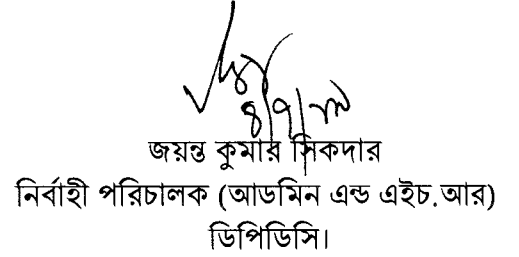 জয়ন্ত কুমার সিকদার
নির্বাহী পরিচালক (আডমিন এন্ড এইচ.আর)
ডিপিডিসি।